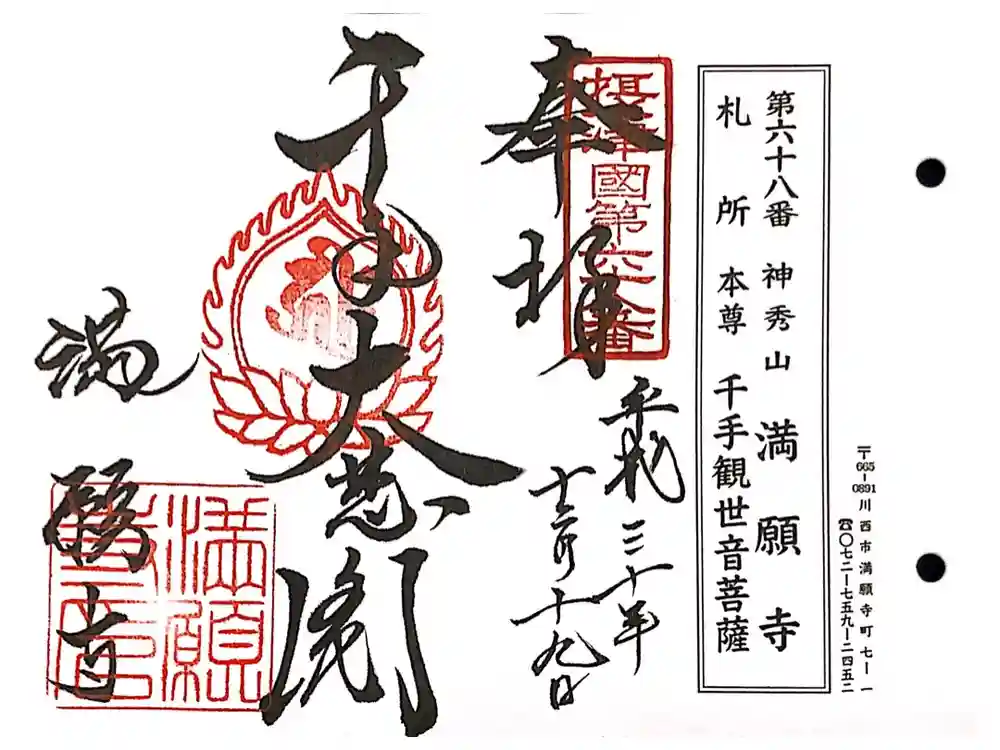 〒665-0891 川西市満願寺町七ー一
☎〇七二ー七五九ー二四五二
第六十八番 神秀山 満願寺
札所 本尊 千手観世音菩薩
摂津國第六十八番
奉拝
平成三十年
十二月十九日
千手大悲閣
満願寺
満願
寺印